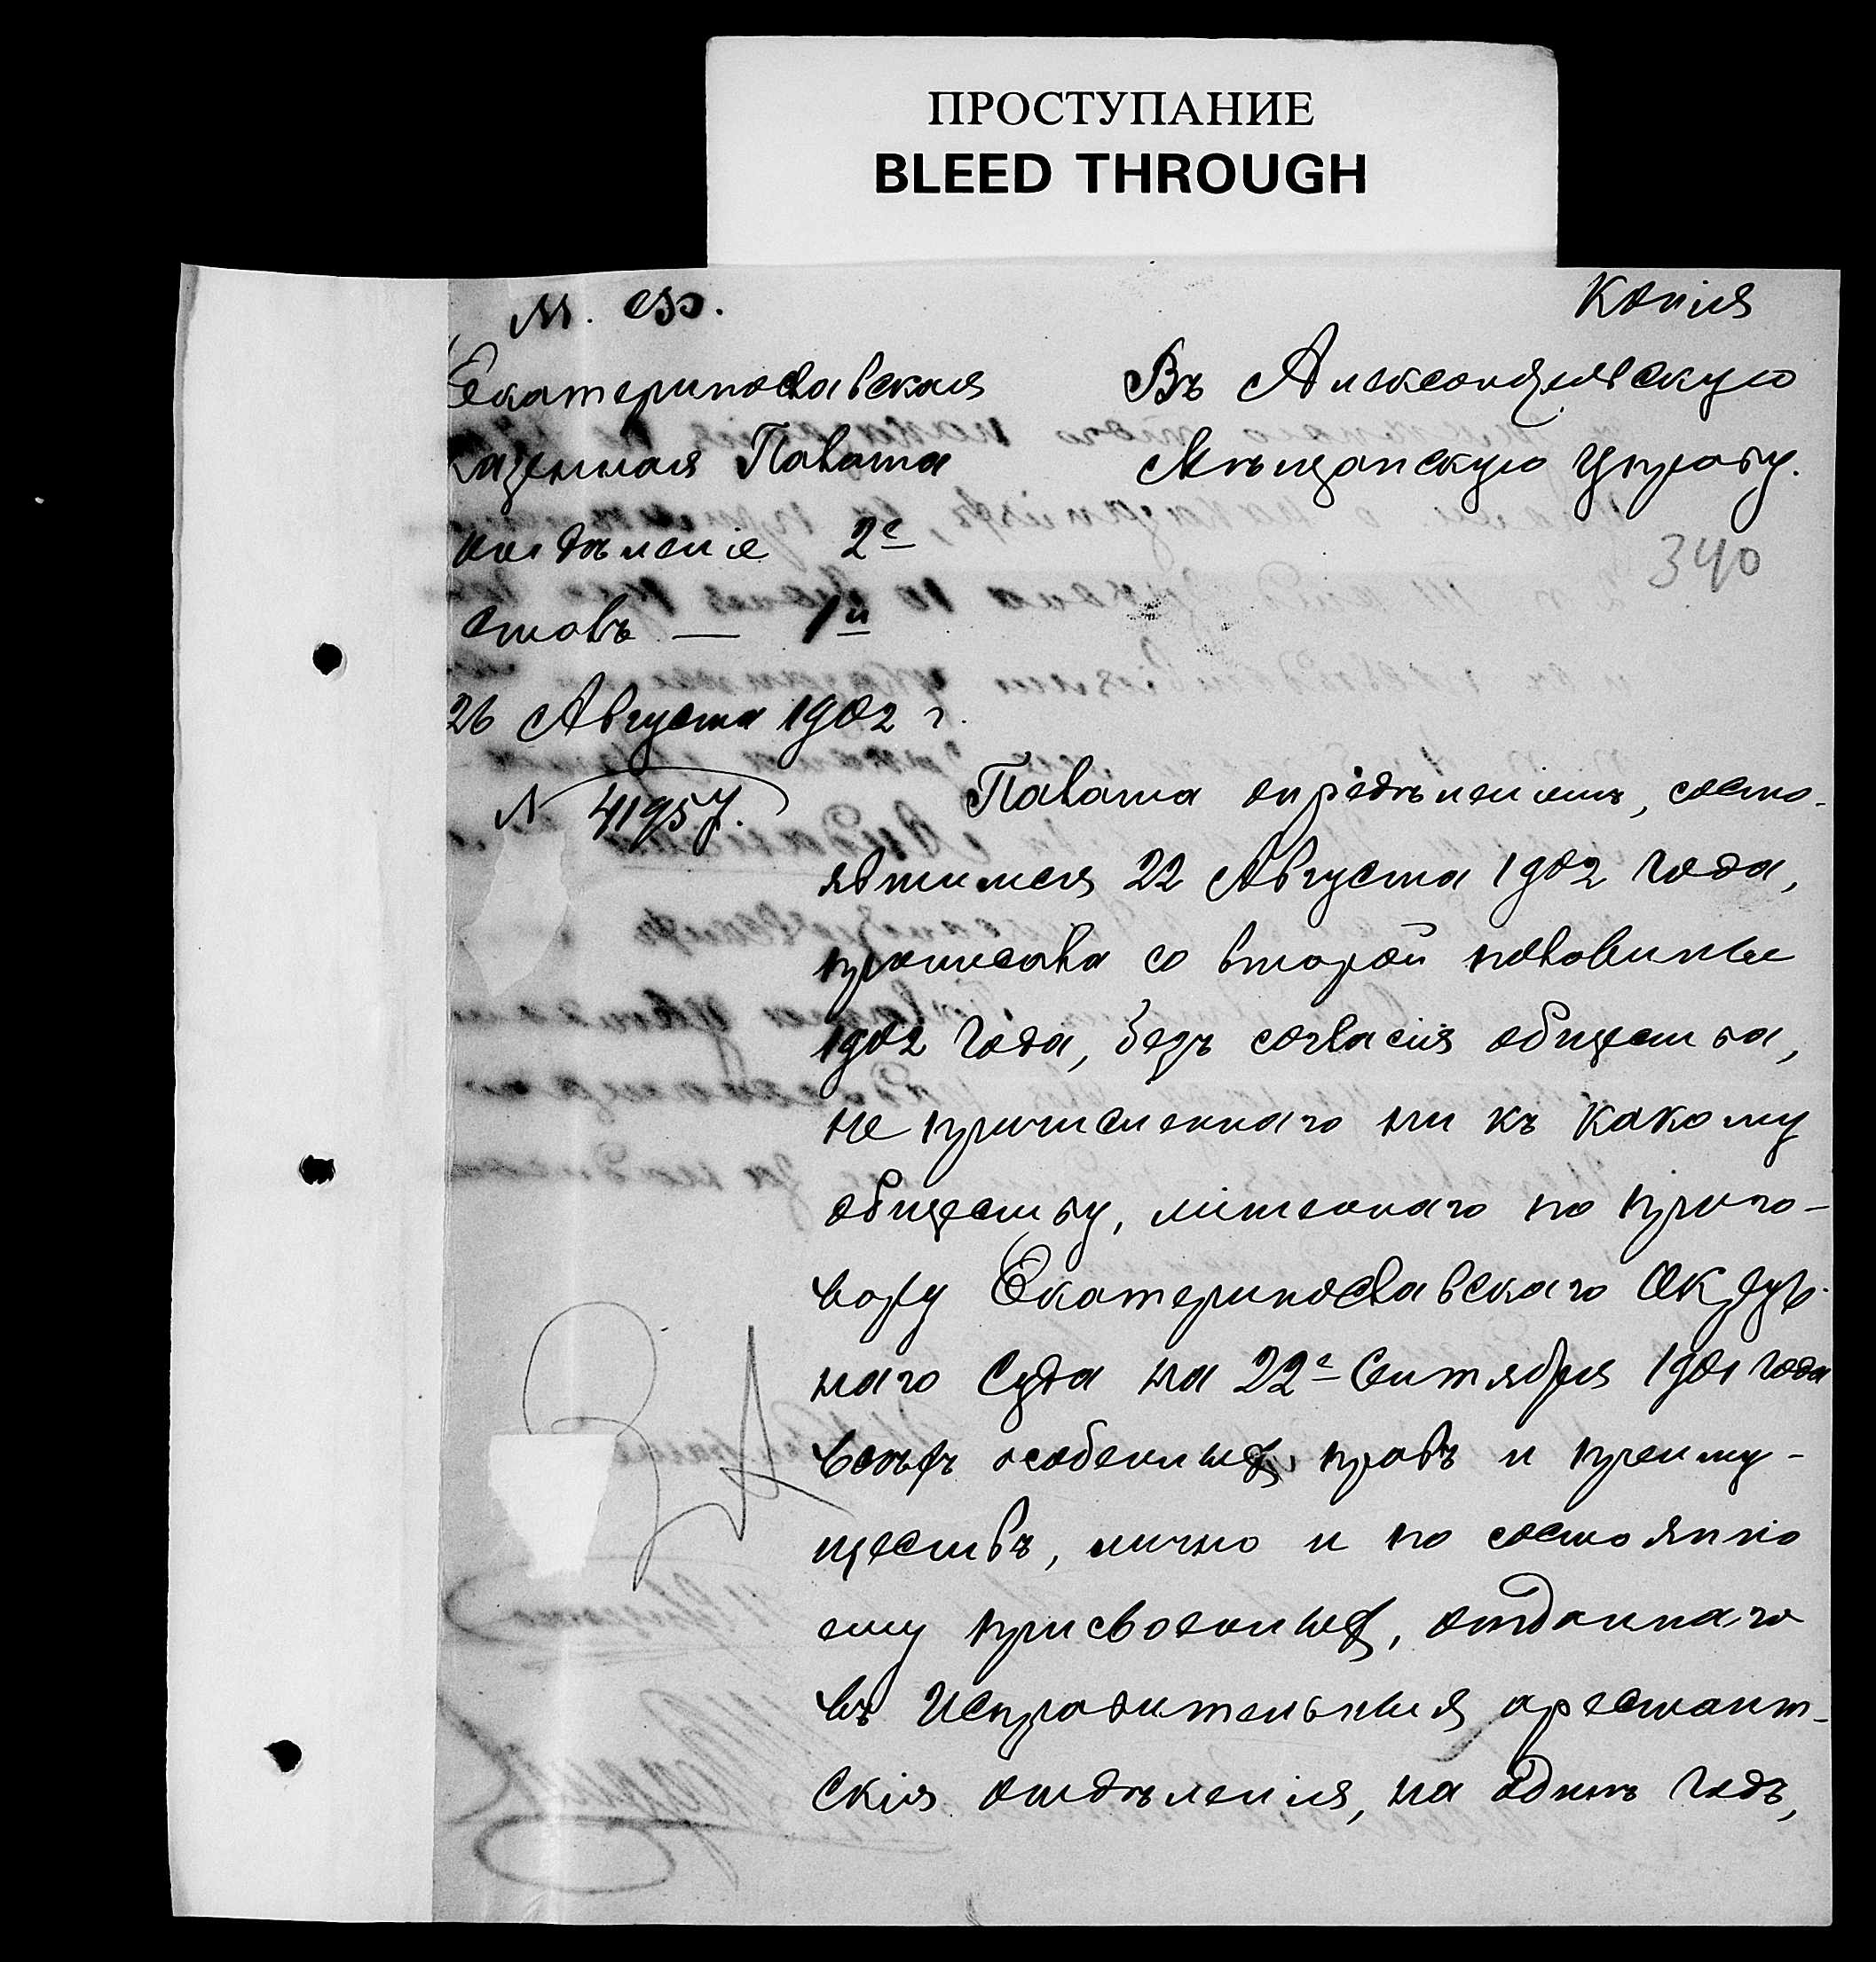 ПРОСТУПАНИЕ
BLEED THROUGH
Копія
М. Ф.
Екатеринославская
Казенная Палата
отдѣленіе 2е
столъ — 1й
26 Августа 1902 г.
№ 41957.
Въ Александровскую
Мѣщанскую Управу.
340
Палата опредѣленіемъ, состо-
явшимся 22 Августа 1902 года,
приписала со второй половины
1902 года, безъ согласія общества,
не причисленнаго ни къ какому
обществу, лишеннаго по приго-
вору Екатеринославскаго Окруж-
наго Суда на 22е Сентября 1901 года
всѣхъ особенныхъ правъ и преиму-
ществъ, лично и по состоянію
ему присвоенныхъ, отданнаго
въ Исправительныя арестант-
скія отдѣленія, на одинъ годъ,